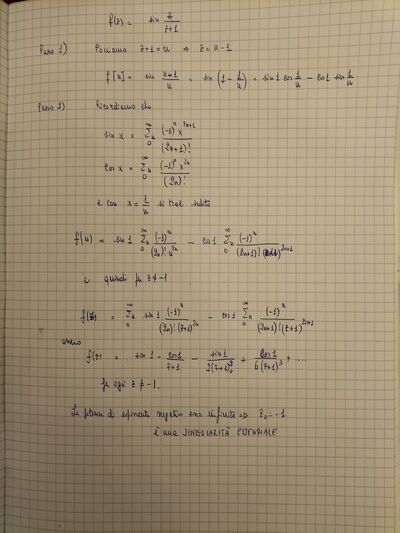 f(z) = sin z/(z+1)
Passo 1) Poniamo z+1 = u ⇒ z = u-1
f[u] = sin (u+1)/u = sin (1 - 1/u) = sin 1 cos 1/u - cos 1 sin 1/u
Passo 2) Ricordiamo che
sin x = Σn 0 ∞ (-1)^n x^(2n+1) / (2n+1)!
cos x = Σn 0 ∞ (-1)^n x^(2n) / (2n)!
e con x = 1/u si trae subito
f(u) = sin 1 Σn 0 ∞ (-1)^n / (2n)! u^(2n) - cos 1 Σn 0 ∞ (-1)^n / (2n+1)! u^(2n+1)
e quindi per z ≠ -1
f(z) = Σn 0 ∞ sin 1 (-1)^n / (2n)! (z+1)^(2n) - cos 1 Σn 0 ∞ (-1)^n / (2n+1)! (z+1)^(2n+1)
ovvero
f(z) = sin 1 - cos 1/(z+1) - sin 1/2(z+1)^2 + cos 1/6(z+1)^3 + ....
per ogni z ≠ -1.
Le potenze di esponente negativo sono infinite ⇒ z0 = -1
è una SINGOLARITÀ ESSENZIALE